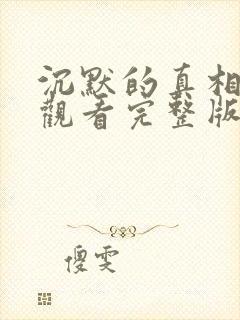 沉默的真相
觀看完整版
傻雯